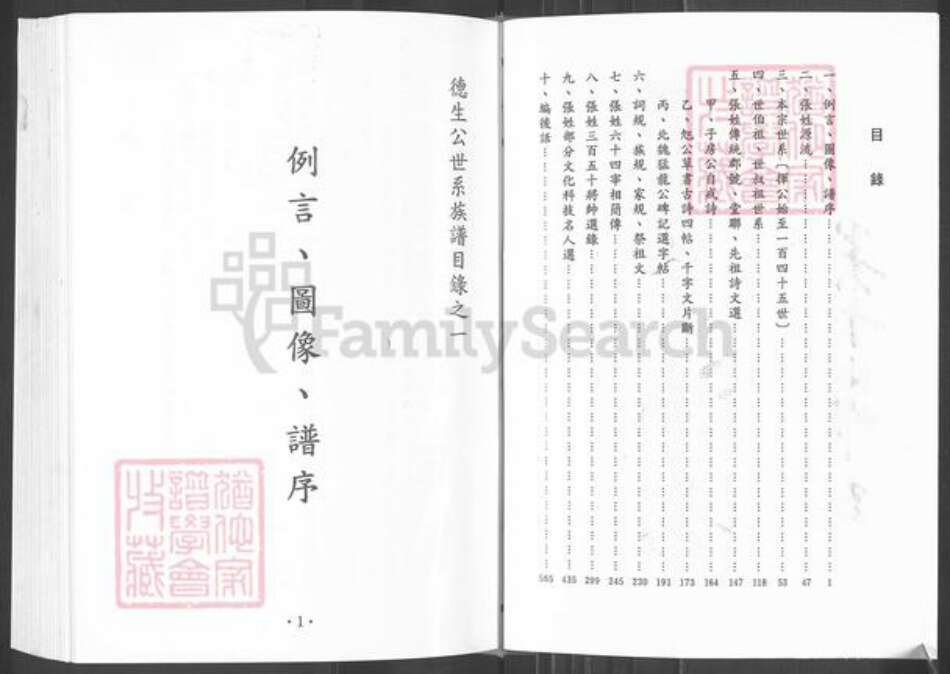 目錄
一、例言、圖像、譜序……1
二、張姓源流……47
三、本宗世系〔揮公始至一百四十五世〕……53
四、世伯祖、世叔祖世系……118
五、張姓傳統郡號、堂聯、先祖詩文選……147
甲、子房公自戒詩……164
乙、旭公草書古詩四帖、千字文片斷……173
丙、北魏猛龍公碑記選字帖……191
六、詞規、族規、家規、祭祖文……230
七、張姓六十四宰相簡傳……245
八、張姓三百五十將帥選錄……299
九、張姓部分文化科技名人選……435
十、編後話……565
德生公世系族譜目錄之一
例言、圖像、譜序
·1·
FamilySearch
譜學會
收藏